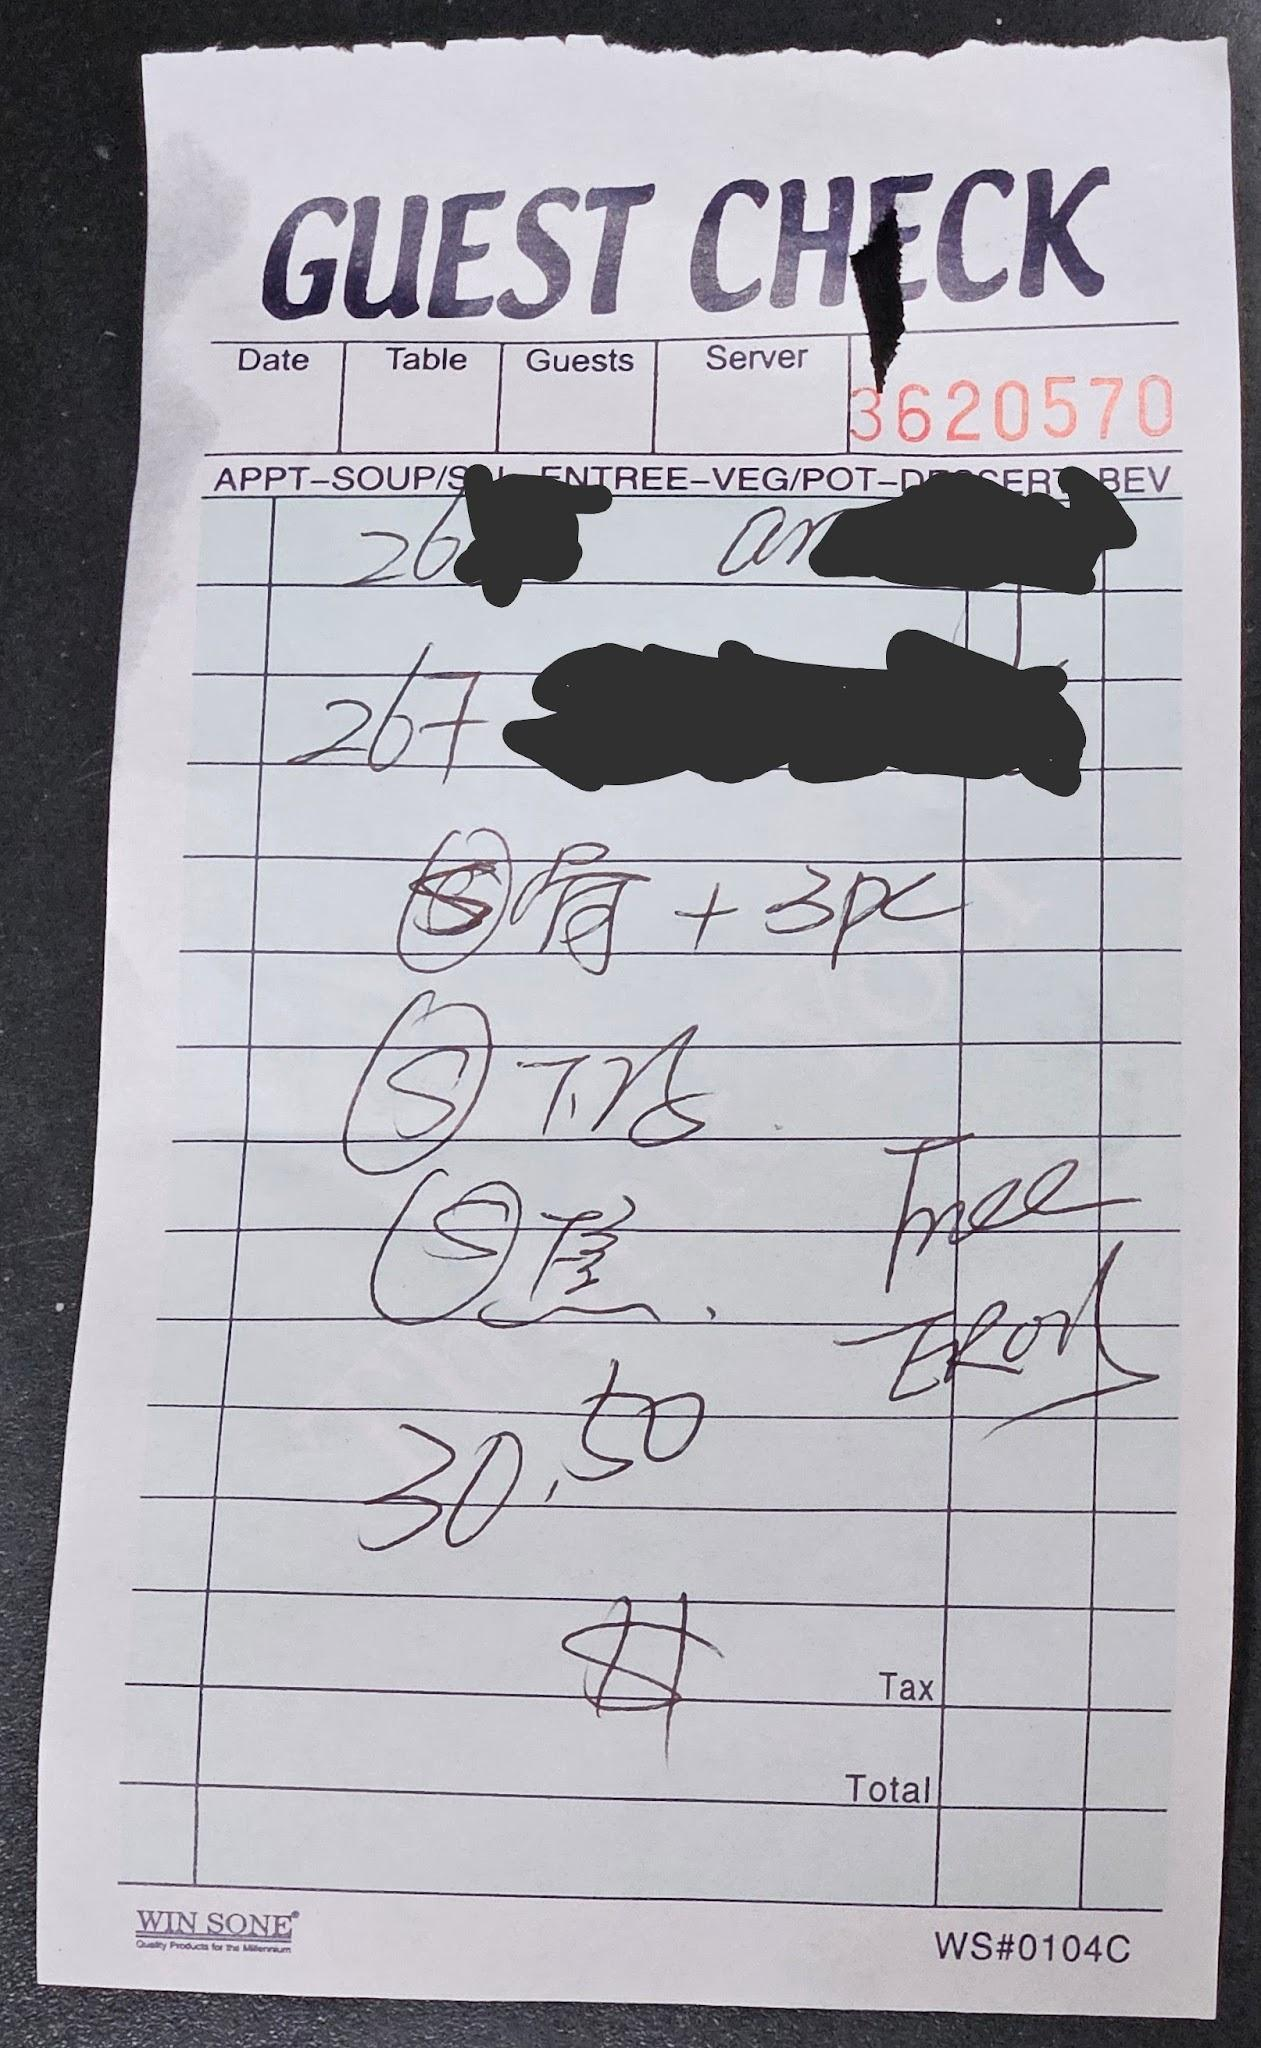 GUEST CHECK
Date Table Guests Server
3620570
APPT-SOUP/S ENTREE-VEG/POT-DESSERT-BEV
26
267
Ⓢ + 3pc
Ⓢ
Ⓢ
Free
EROll
30.50
Tax
Total
WIN SONE®
Quality Products for the Millennium
WS#0104C